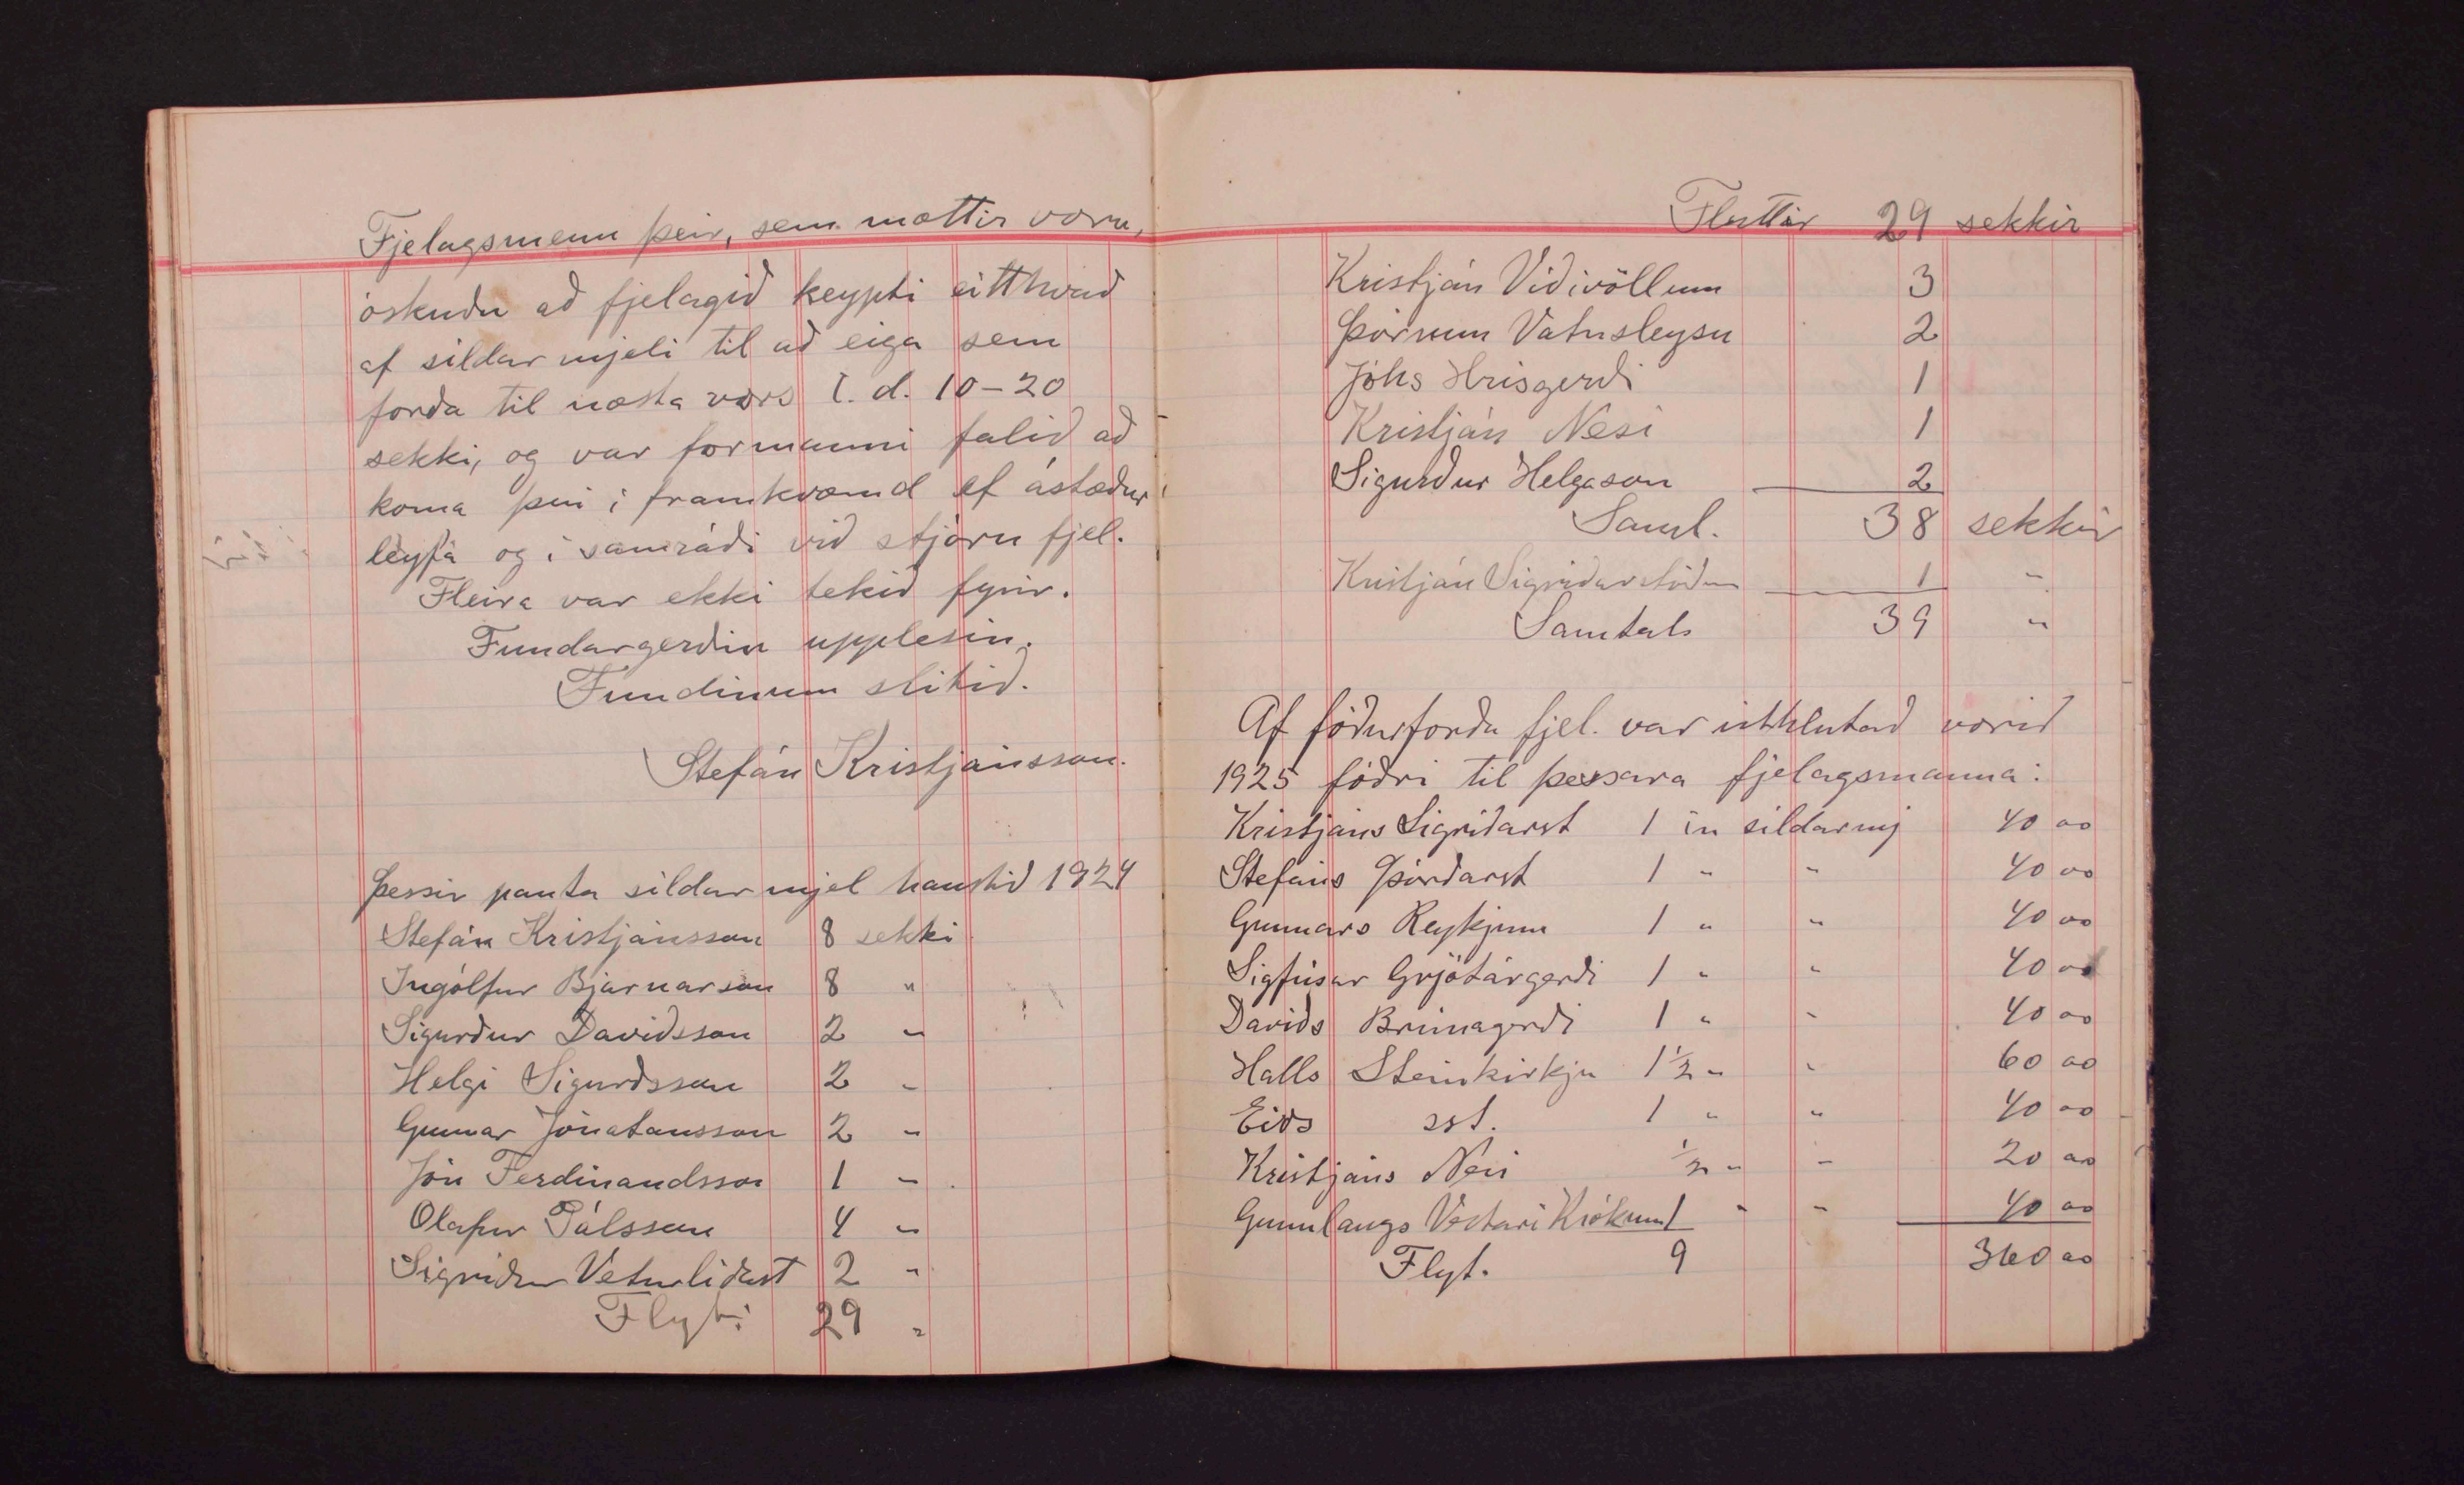 Fjelagsmenn þeir, sem mættir voru,
óskuðu að fjelagið keypti eitthvað
af síldarmjeli til að eiga sem
forða til næsta vors t.d. 10-20
sekki, og var formanni falið að
koma því í framkvæmd ef ástæður
leyfa og í samráði við stjórn fjel.
Fleira var ekki tekið fyrir.
Fundargerðin upplesin.
Fundinum slitið.
Stefán Kristjánsson.
Þessir panta síldarmjel haustið 1924
Stefán Kristjánsson 8 sekki
Ingólfur Bjarnarson 8 "
Sigurður Davíðsson 2 "
Helgi Sigurðsson 2 "
Gunnar Jónatansson 2 "
Jón Ferdinandsson 1 "
Olafur Pálsson 4 "
Sigríður Veturliðast 2 "
Flyt: 29 "
Fluttir 29 sekkir
Kristján Víðivöllum 3
Þórunn Vatnsleysu 2
Jóhs Hrísgerði 1
Kristján Nesi 1
Sigurður Helgason 2
Saml. 38 sekkir
Kristján Sigríðarstöðum 1 "
Samtals 39 "
Af fóðurforða fjel. var úthlutað vorið
1925 fóðri til þessara fjelagsmanna:
Kristjáns Sigríðarst 1 tn síldarmj 40 00
Stefáns Þórðarst 1 " " 40 00
Gunnars Reykjum 1 " " 40 00
Sigfúsar Grjótárgerði 1 " " 40 00
Davíðs Brúnagerði 1 " " 40 00
Halls Steinkirkju 1½ " " 60 00
Eiðs sst. 1 " " 40 00
Kristjáns Nesi ½ " " 20 00
Gunnlaugs Vestari Krókum 1 " " 40 00
Flyt. 9 360 00